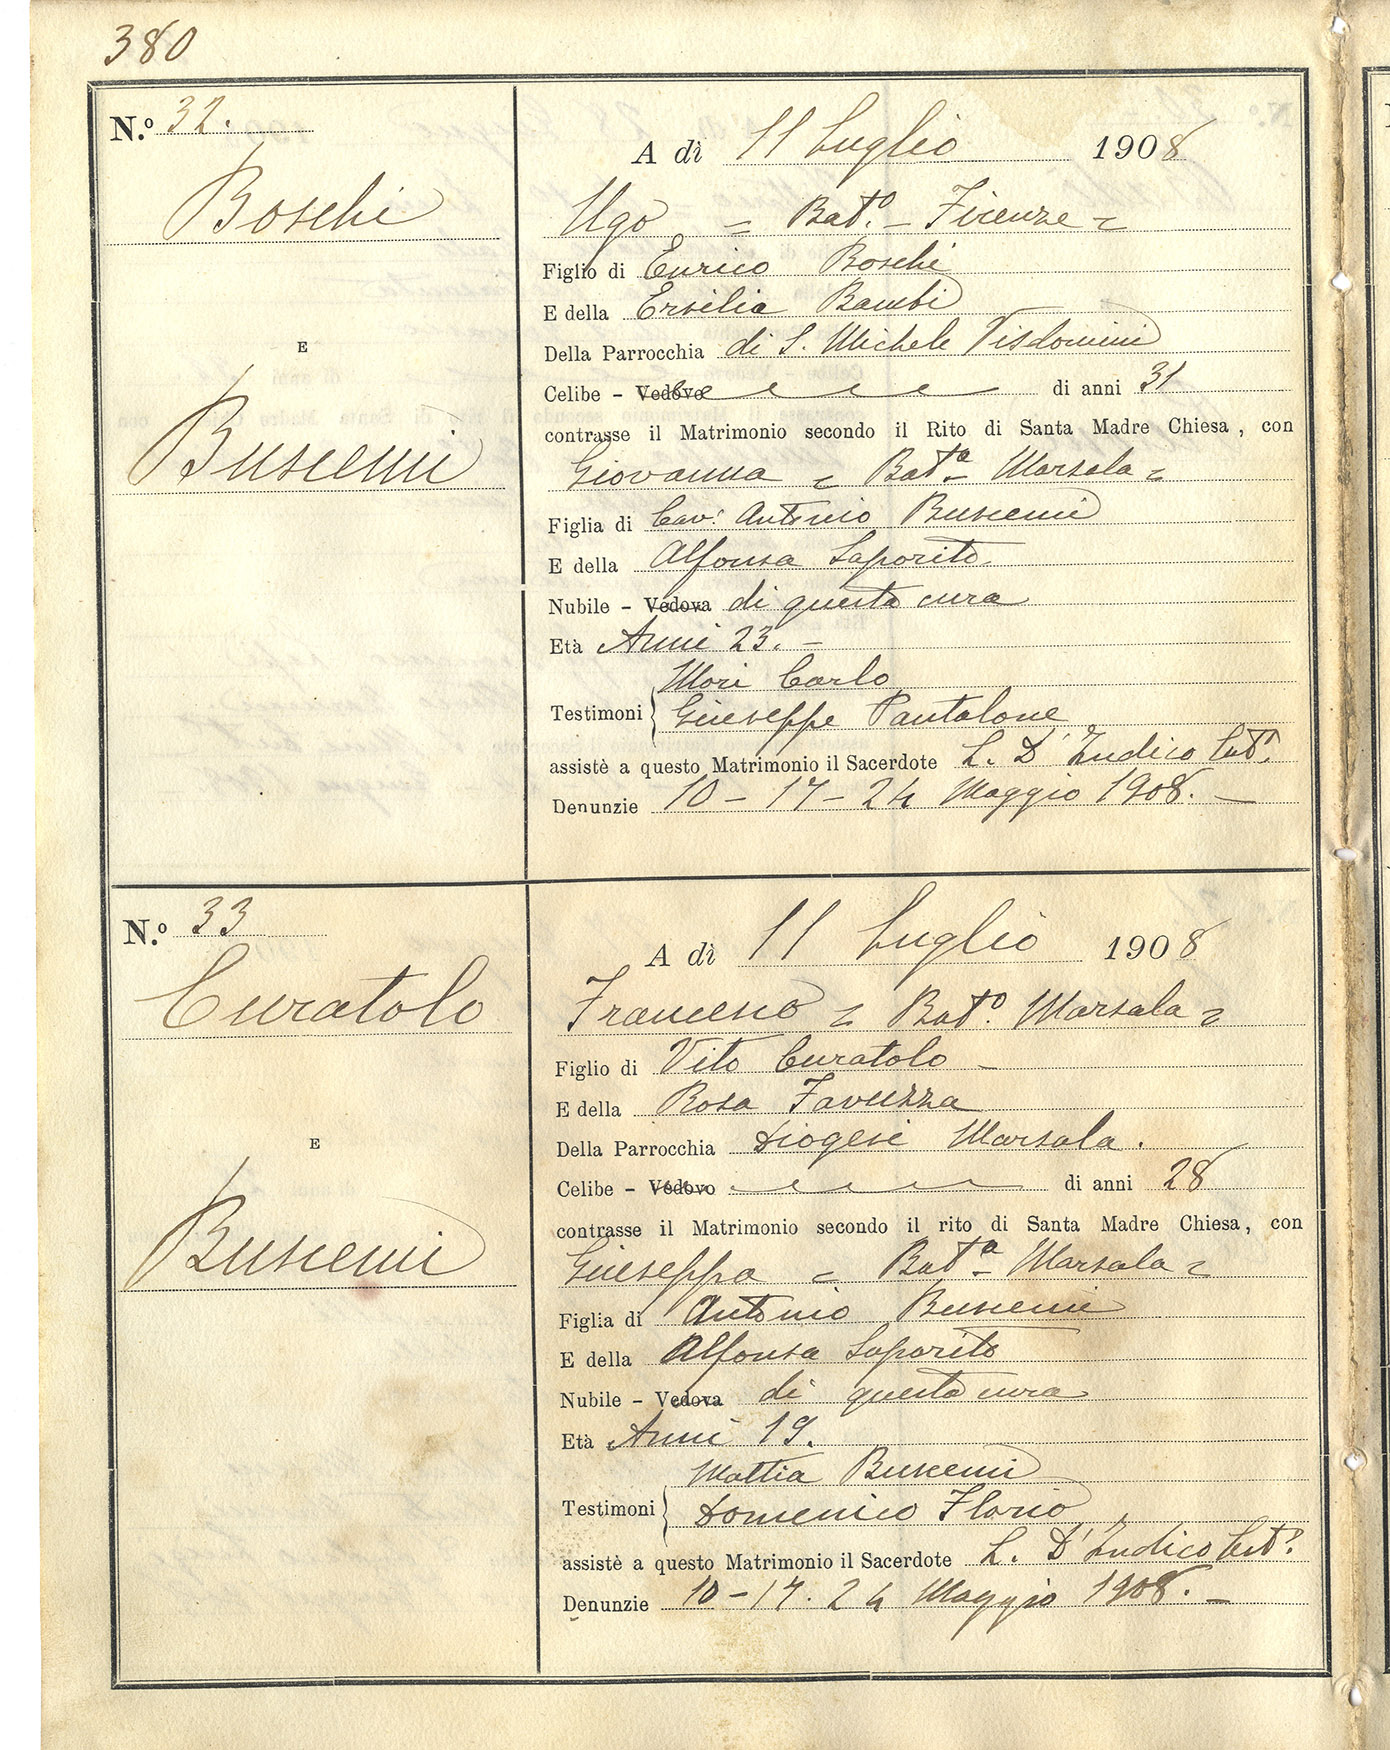 380
N.º 32.
Boschi
E
Buscemi
A dì 11 Luglio 1908
Ugo = Bat.º - Firenze =
Figlio di Enrico Boschi
E della Ersilia Bambi
Della Parrocchia di S. Michele Visdomini
Celibe - Vedovo di anni 31
contrasse il Matrimonio secondo il Rito di Santa Madre Chiesa, con
Giovanna = Batª - Marsala =
Figlia di Cav: Antonio Buscemi
E della Alfonsa Saporito.
Nubile - Vedova di questa cura
Età Anni 23. -
Testimoni { Mori Carlo
Giuseppe Pantalone
assistè a questo Matrimonio il Sacerdote L. D'Indico
Denunzie 10 - 17 - 24 Maggio 1908. -
N.º 33
Curatolo
E
Buscemi
A dì 11 Luglio 1908
Francesco = Bat.º Marsala =
Figlio di Vito Curatolo -
E della Rosa Favuzza
Della Parrocchia Diogesi Marsala.
Celibe - Vedovo di anni 28
contrasse il Matrimonio secondo il rito di Santa Madre Chiesa, con
Giuseppa = Batª - Marsala =
Figlia di Antonio Buscemi
E della Alfonsa Saporito
Nubile - Vedova di questa cura
Età Anni 19.
Testimoni { Mattia Buscemi
Domenico Florio
assistè a questo Matrimonio il Sacerdote L. D'Indico
Denunzie 10 - 17. 24 Maggio 1908. -